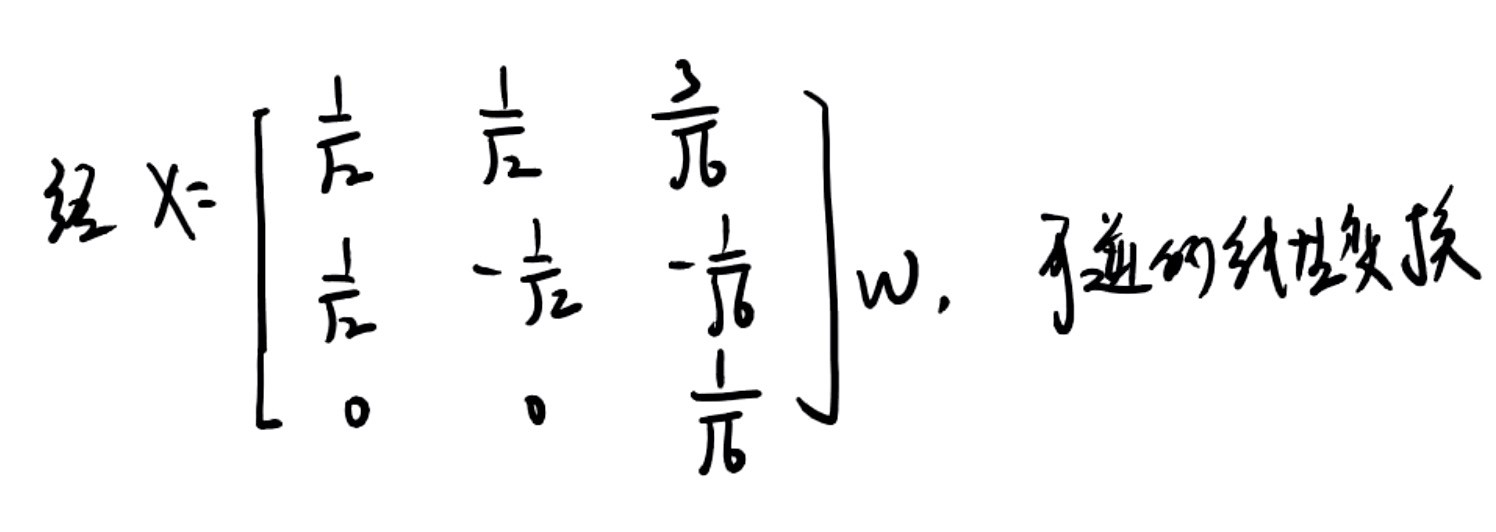 经 X= [ 1/√2 1/√2 3/√6
1/√2 -1/√2 -1/√6
0 0 1/√6 ] W, 可逆的线性变换